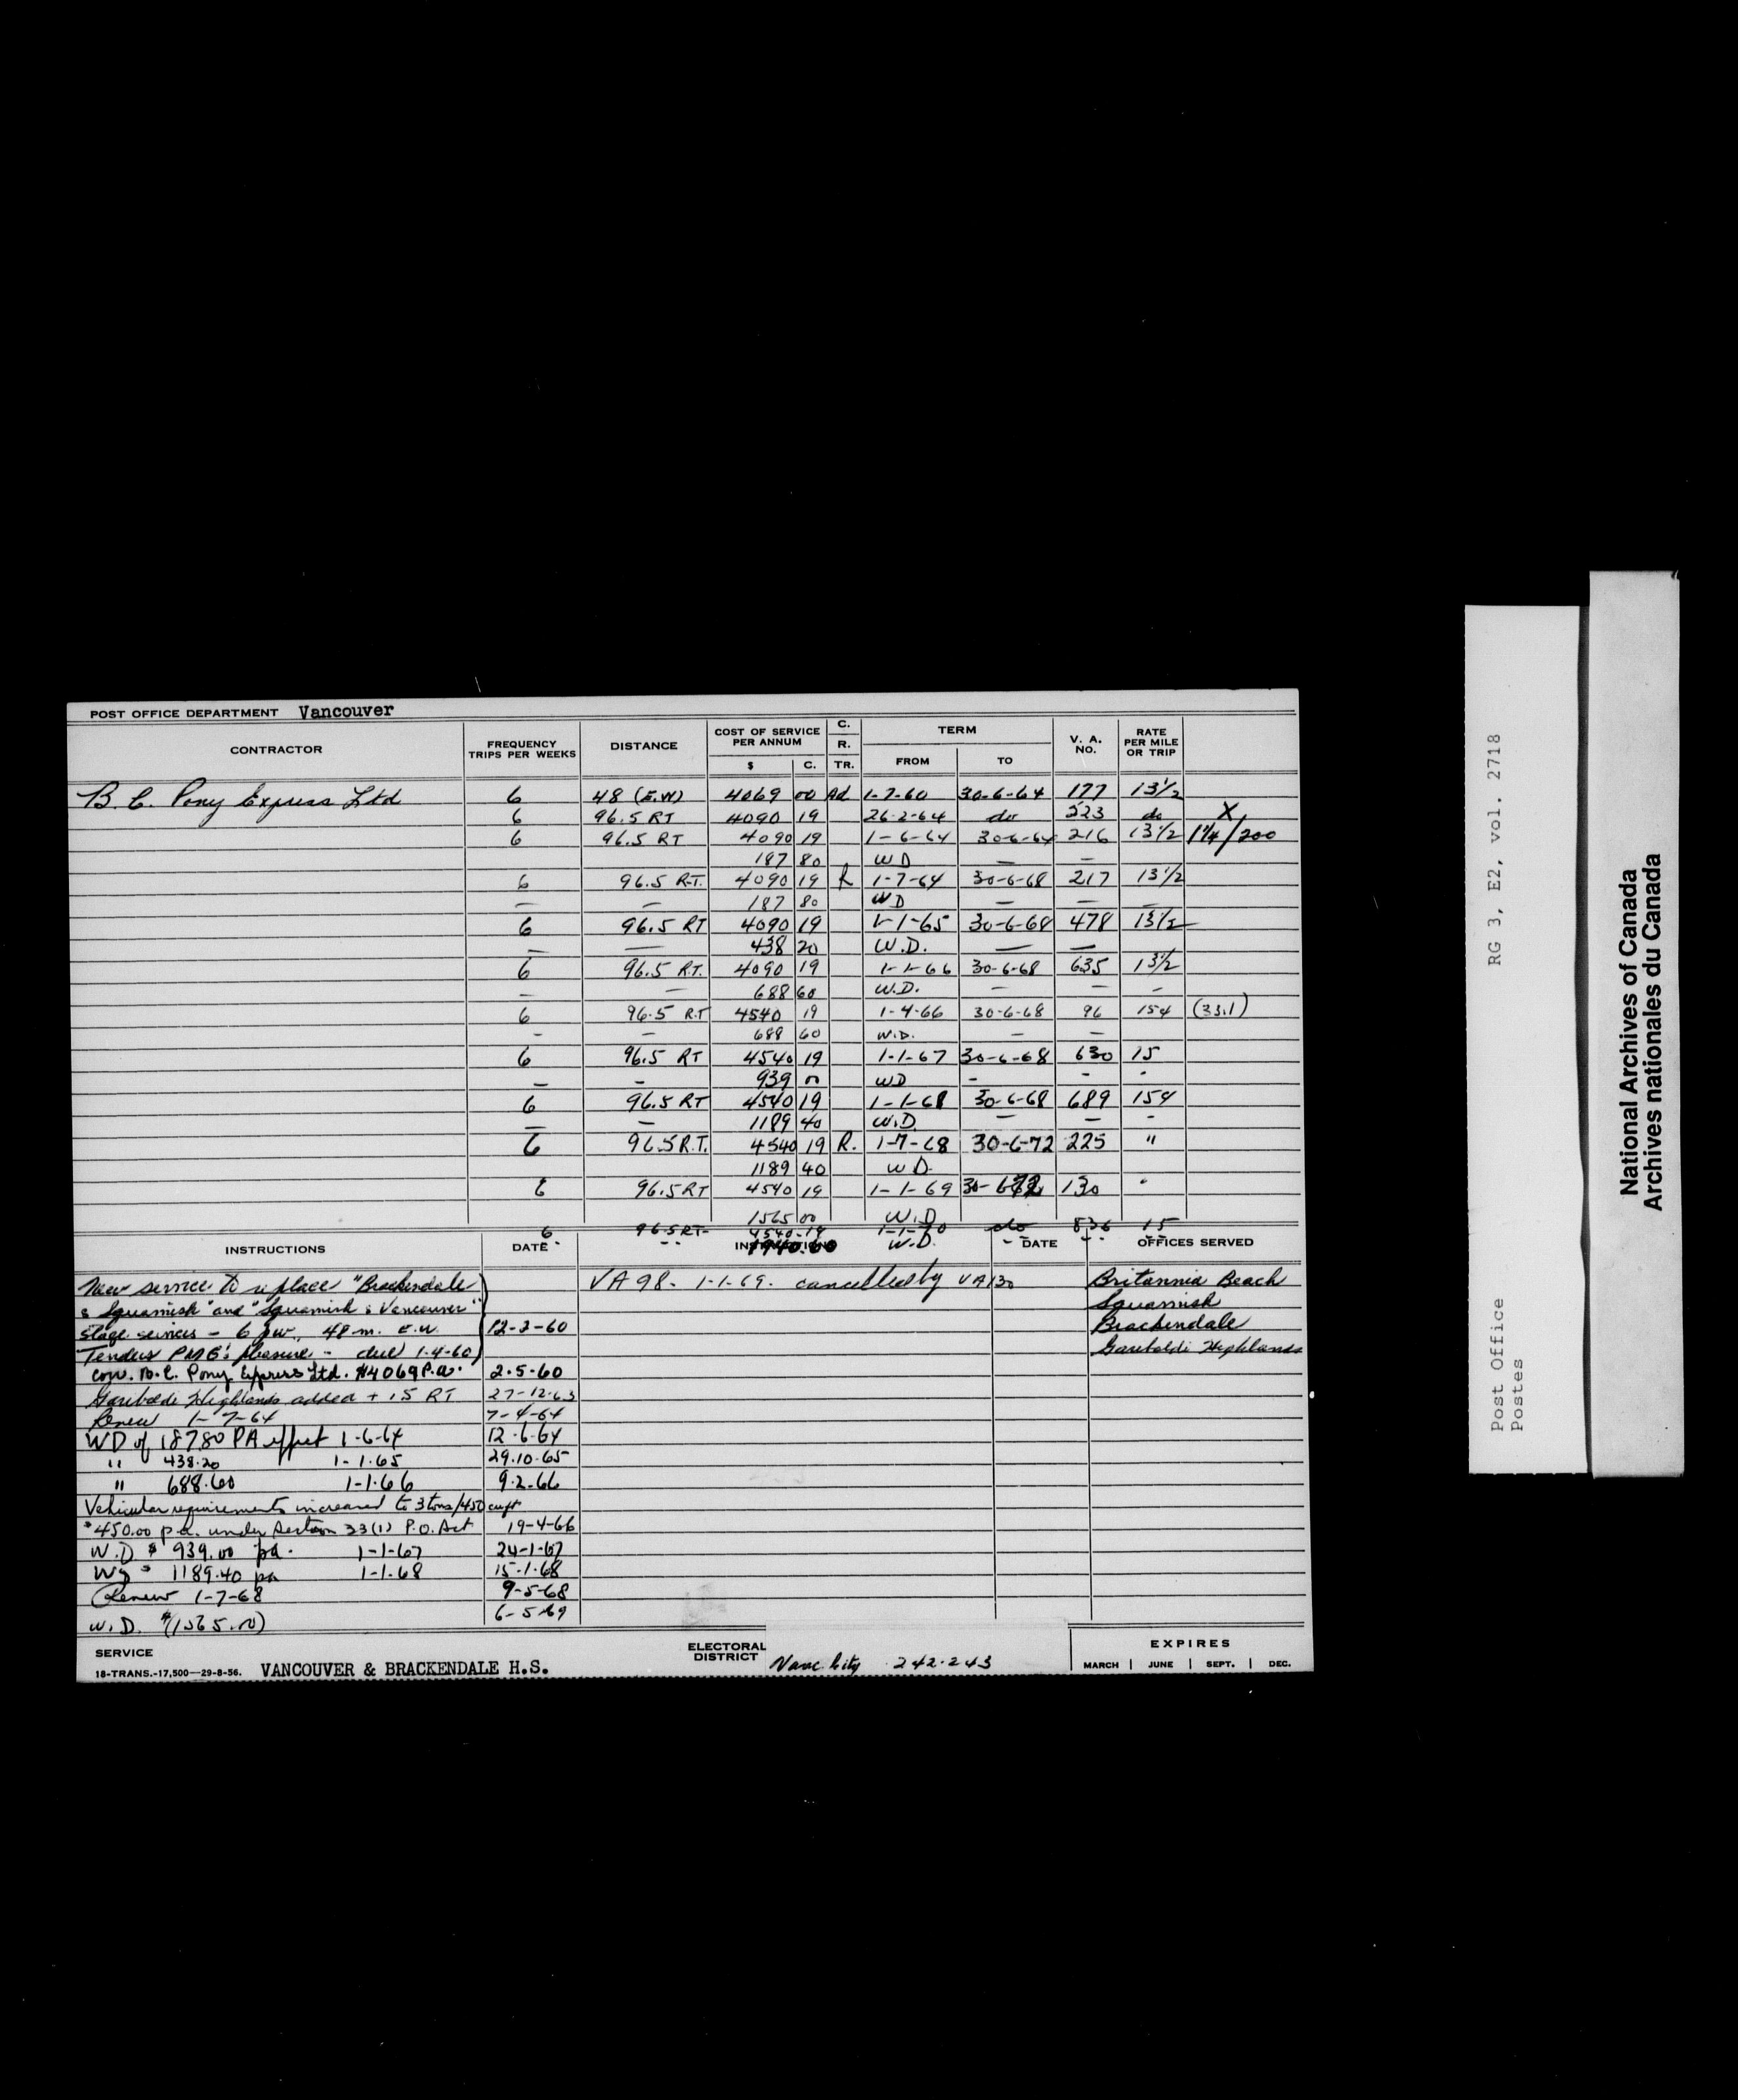 POST OFFICE DEPARTMENT Vancouver
CONTRACTOR FREQUENCY TRIPS PER WEEKS DISTANCE COST OF SERVICE PER ANNUM $ C. C. R. TR. TERM FROM TO V. A. NO. RATE PER MILE OR TRIP
B. C. Pony Express Ltd 6 48 (E.W) 4069 00 Ad 1-7-60 30-6-64 177 13½
6 96.5 RT 4090 19 26-2-64 do 223 do X
6 96.5 RT 4090 19 1-6-64 30-6-64 216 13½ 1¼/200
187 80 WD — —
6 96.5 R.T. 4090 19 R 1-7-64 30-6-68 217 13½
— — 187 80 WD — — —
6 96.5 RT 4090 19 1-1-65 30-6-68 478 13½
— — 438 20 W.D. — —
6 96.5 R.T. 4090 19 1-1-66 30-6-68 635 13½
— — 688 60 W.D. — — —
6 96.5 R.T 4540 19 1-4-66 30-6-68 96 154 (33.1)
- — 688 60 W.D. — —
6 96.5 RT 4540 19 1-1-67 30-6-68 630 15
— - 939 00 WD - - -
6 96.5 RT 4540 19 1-1-68 30-6-68 689 154
— — 1189 40 W.D. — — -
6 96.5 R.T. 4540 19 R. 1-7-68 30-6-72 225 "
1189 40 W D.
6 96.5 RT 4540 19 1-1-69 30-6-72 130 "
1565 00 W.D
6 96.5 RT- 4540-19 1-1-70 do 836 15
1940.60 W.D.
INSTRUCTIONS DATE INSTRUCTIONS DATE OFFICES SERVED
New service to replace "Brackendale
& Squamish" and "Squamish & Vancouver"
stage services - 6 pw, 48 m. E.W. 12-2-60
Tenders PMG's pleasure - due 1-4-60
con. B.C. Pony Express Ltd. $4069 P.a. 2-5-60
Garibaldi Highlands added + .5 RT 27-12-63
Renew 1-7-64 7-4-64
WD of 187.80 PA effect 1-6-64 12-6-64
" 438.20 1-1-65 29.10.65
" 688.60 1-1-66 9.2.66
Vehicular requirements increased to 3 tons/450 cu ft
$450.00 p.a. under Section 33(1) P.O. Act 19-4-66
W.D $ 939.00 pa. 1-1-67 24-1-67
WD $ 1189.40 pa 1-1-68 15-1-68
Renew 1-7-68 9-5-68
W.D. $(1565.00) 6-5-69
VA 98. 1-1-69. cancelled by VA 130
Britannia Beach
Squamish
Brackendale
Garibaldi Highlands
SERVICE
18-TRANS.-17,500—29-8-56. VANCOUVER & BRACKENDALE H.S.
ELECTORAL DISTRICT Vanc. City 242-243
EXPIRES
MARCH | JUNE | SEPT. | DEC.
Post Office RG 3, E2, vol. 2718
Postes
National Archives of Canada
Archives nationales du Canada